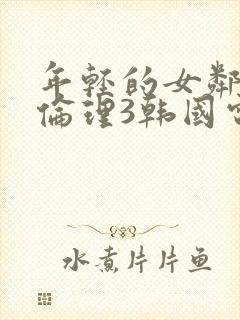 年轻的女鄰
倫理3韩國
水煮片片鱼